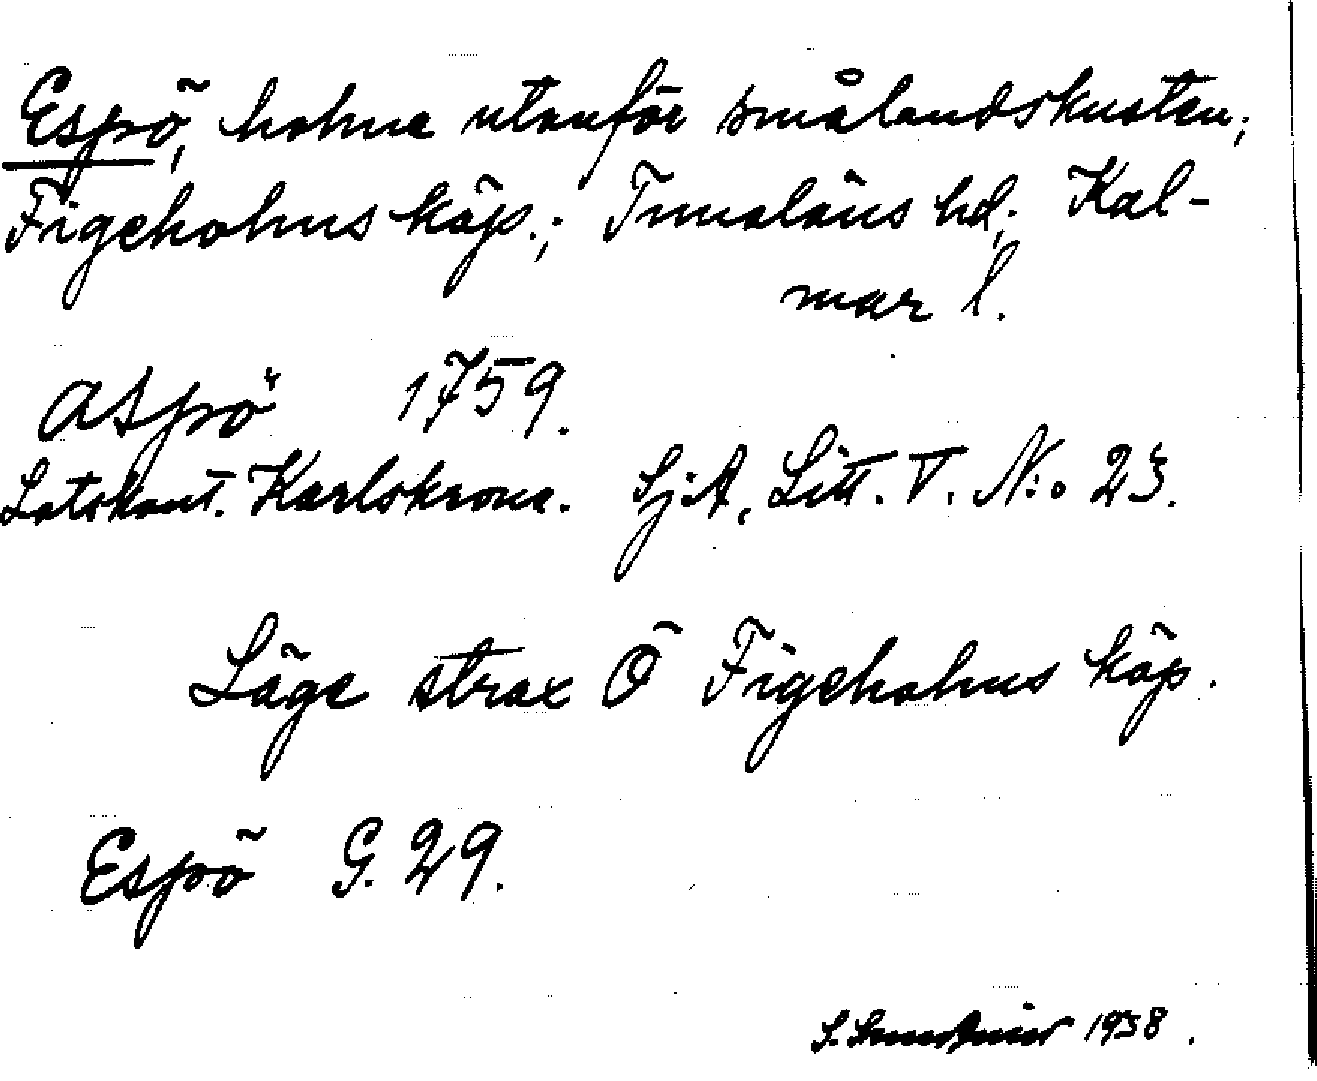 Espö, holme utanför smålandskusten;
Figeholms köp.; Tunaläns hd; Kal-
mar l.
Aspö 1759.
Lotskont. Karlskrona. Sj.A, Litt. V. N:o 23.
Läge strax Ö Figeholms köp.
Espö G. 29.
S. 1938.